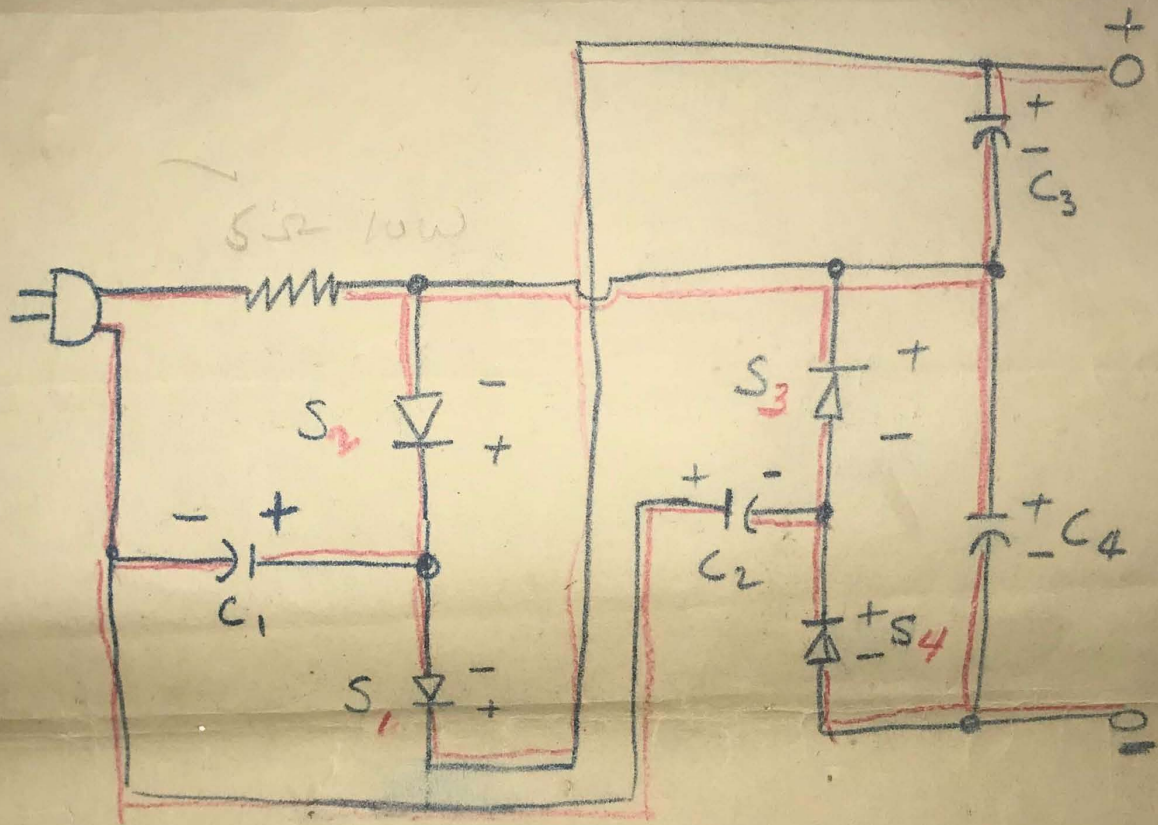 +
+
-
C3
5Ω 10W
-
+
S2
S3
+
-
- +
C1
+ -
C2
+
-
C4
S1
-
+
+
-
S4
-